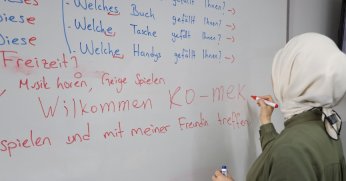 -Welches Buch gefällt Ihnen? →
iese -Welche Tasche gefällt Ihnen? →
iese -Welche Handys gefällt Ihnen? →
Freizeit]
Musik hören, Geige Spielen
Wilkommen KO-mek
spielen und mit meiner Freundin treffen